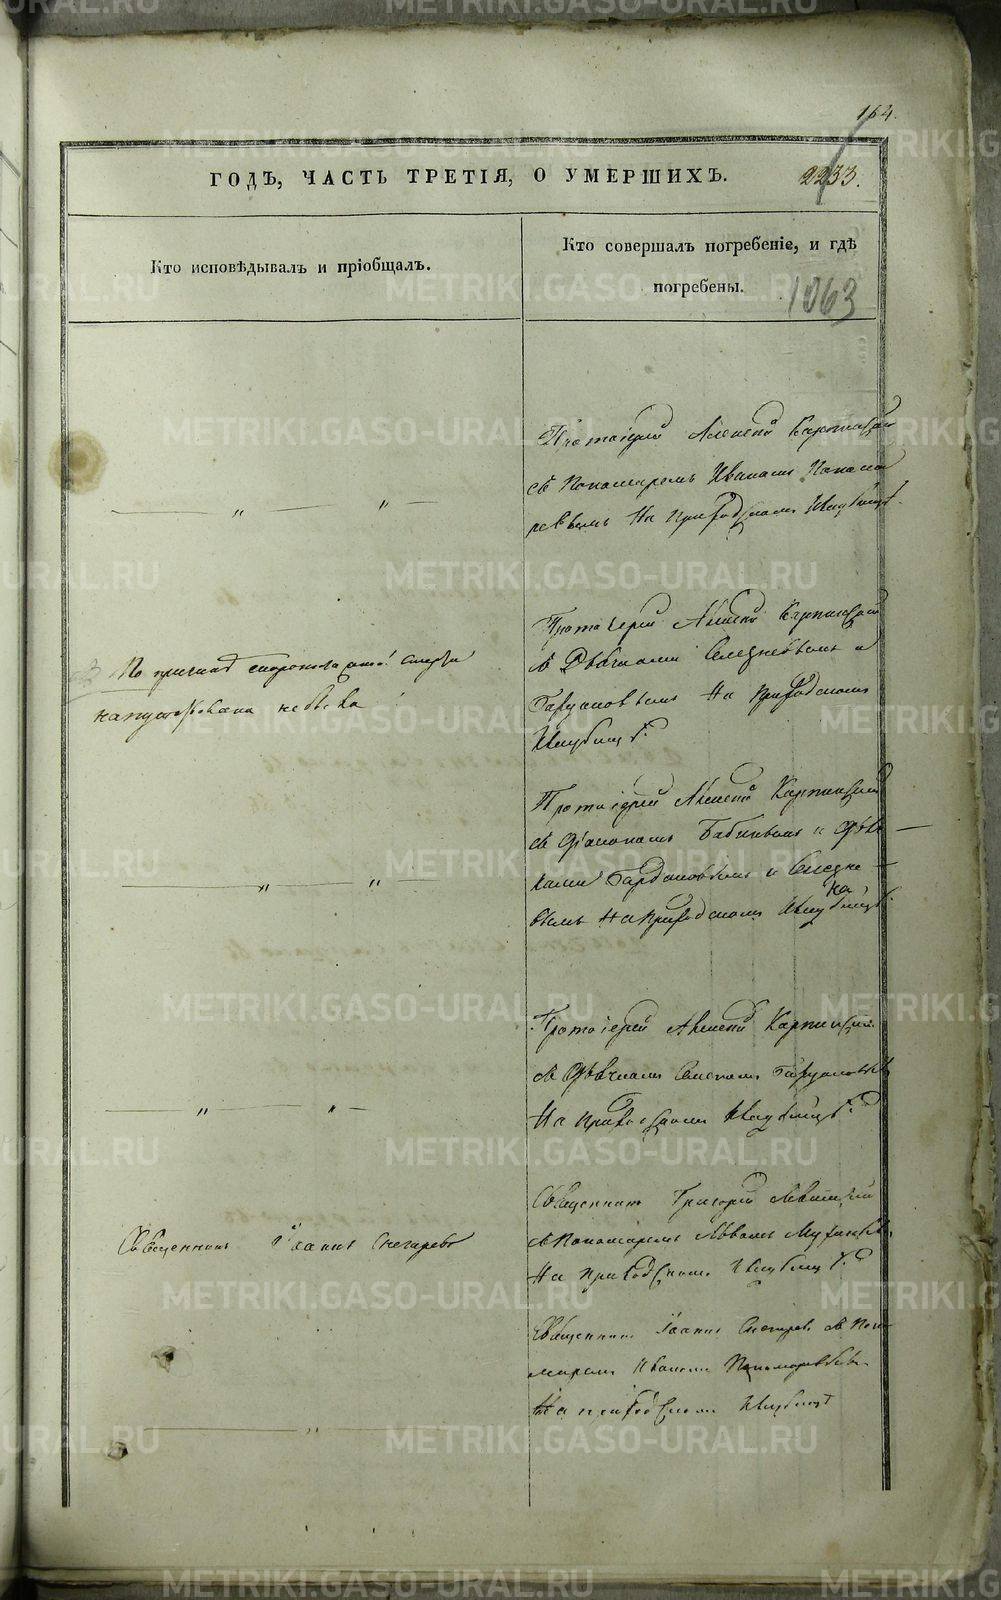 164.
ГОДЪ, ЧАСТЬ ТРЕТІЯ, О УМЕРШИХЪ.
2233.
Кто исповѣдывалъ и пріобщалъ.
Кто совершалъ погребеніе, и гдѣ
погребены.
1063
Протоіерей Алексѣй Карпинскій
съ Пономаремъ Иваномъ Понома
ревымъ На приходскомъ Кладбищѣ.
— „ — „ —
Протоіерей Алексѣй Карпинскій
съ Дьячками Селезневымъ и
На приходскомъ
Кладбищѣ.
По причинѣ скоропостижной смерти
напутствована не была
Протоіерей Алексѣй Карпинскій
съ Діакономъ Бабинымъ и Дьяч
ками и Селезне
вымъ На приходскомъ Кладбищѣ.
— „ — „ —
Протоіерей Алексѣй Карпинскій
съ Дьячкомъ
На приходскомъ Кладбищѣ.
— „ — „ —
Священникъ Григорій Левитскій
съ Пономаремъ Львомъ
На приходскомъ Кладбищѣ.
Священникъ Іоаннъ Снегиревъ
Священникъ Іоаннъ Снегиревъ съ Поно
маремъ Иваномъ Пономаревымъ
На приходскомъ Кладбищѣ
— „ —
METRIKI.GASO-URAL.RU